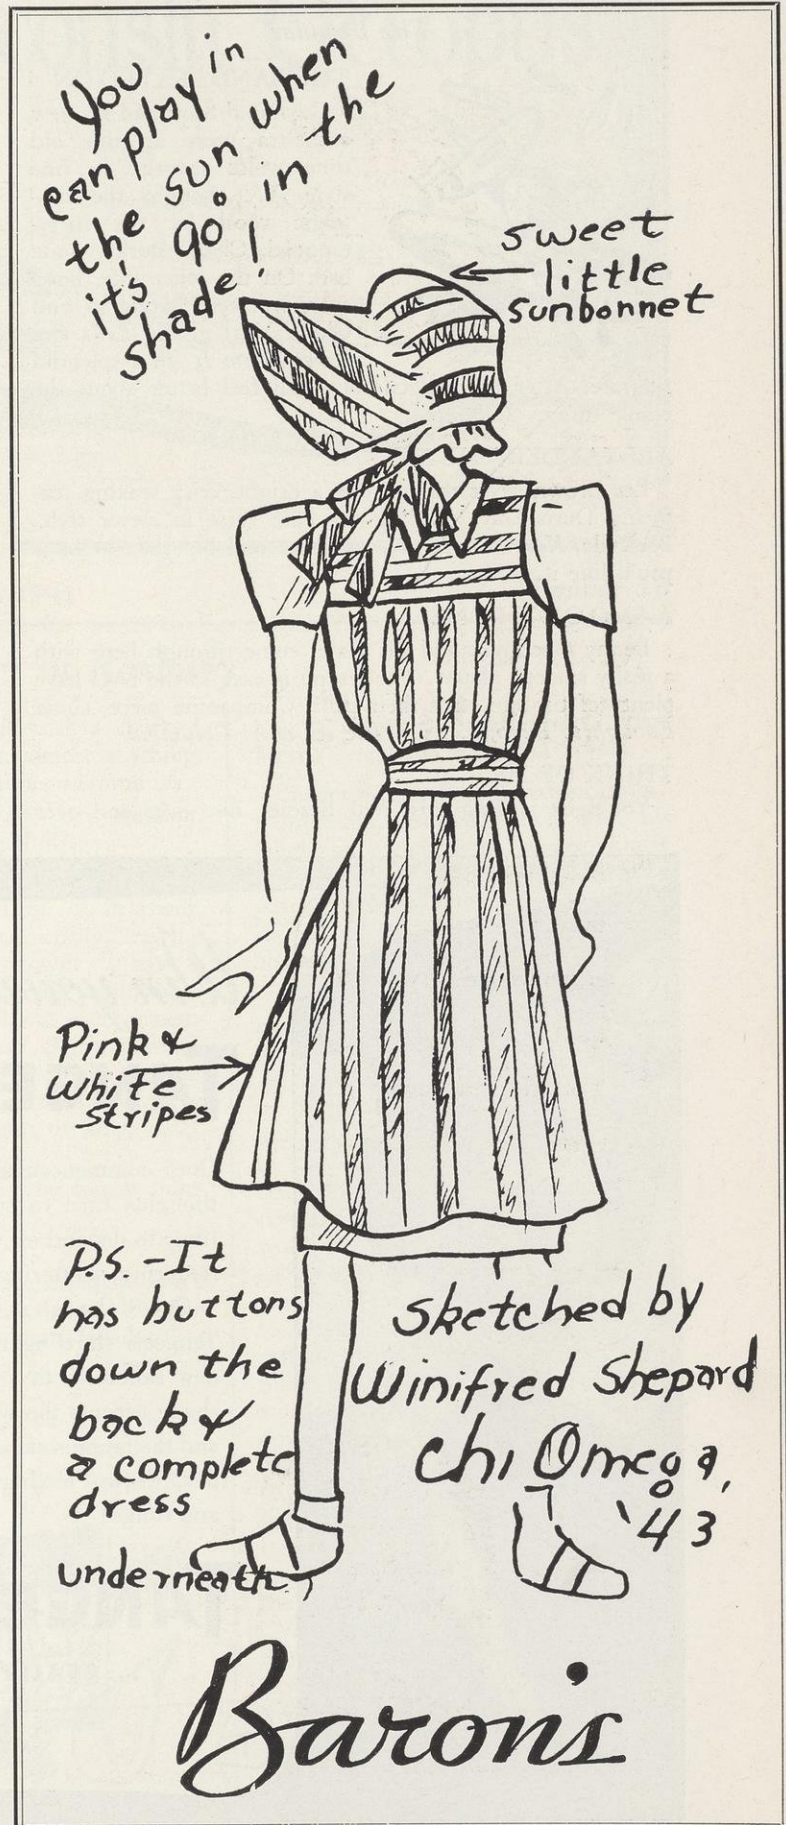 You
can play in
the sun when
it's 90° in the
shade!
sweet
little
sunbonnet
Pink &
white
stripes
P.S. - It
has buttons
down the
back &
a complete
dress
underneath.
Sketched by
Winifred Shepard
Chi Omega,
'43
Baron's